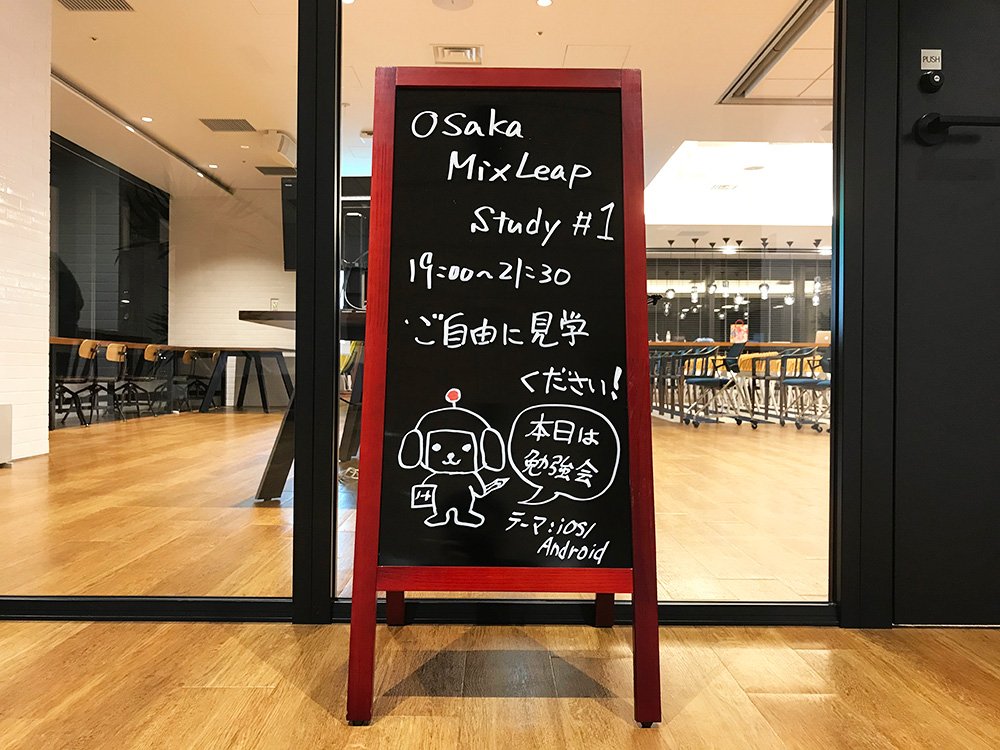 Osaka
MixLeap
Study #1
19:00~21:30
ご自由に見学
ください!
本日は
勉強会
テーマ:iOS/
Android
PUSH